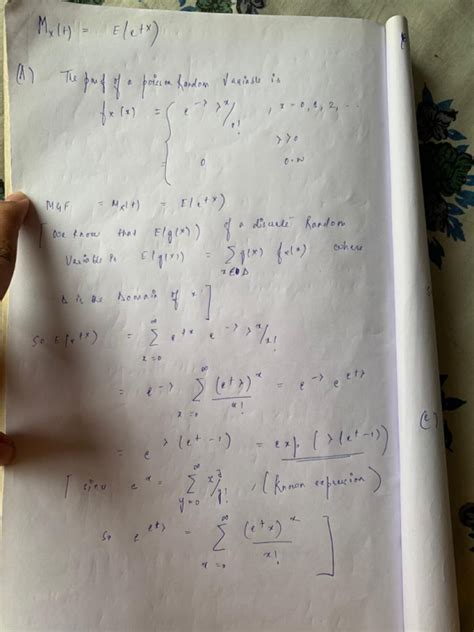 Mx(t) = E(e^tx)
(A) The pmf of a poisson Random Variable is
fx(x) = { e^-λ λ^x/x! , x=0,1,2,...
λ>0
= 0 0.w
MGF = Mx(t) = E(e^tx)
[We know that E(g(x)) of a discrete Random
Variable is E(g(x)) = Σ_{x∈D} g(x) fx(x) where
D is the Domain of x]
So E(e^tx) = Σ_{x=0}^∞ e^tx e^-λ λ^x/x!
= e^-λ Σ_{x=0}^∞ (e^tλ)^x/x! = e^-λ e^{e^tλ}
= e^{λ(e^t-1)} = exp(λ(e^t-1))
[since e^x = Σ_{y=0}^∞ x^y/y! , (known expression)
so e^{e^tλ} = Σ_{x=0}^∞ (e^tx)^x/x! ]